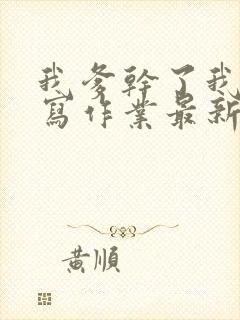 我爹幹了我
寫作業最新
黃順